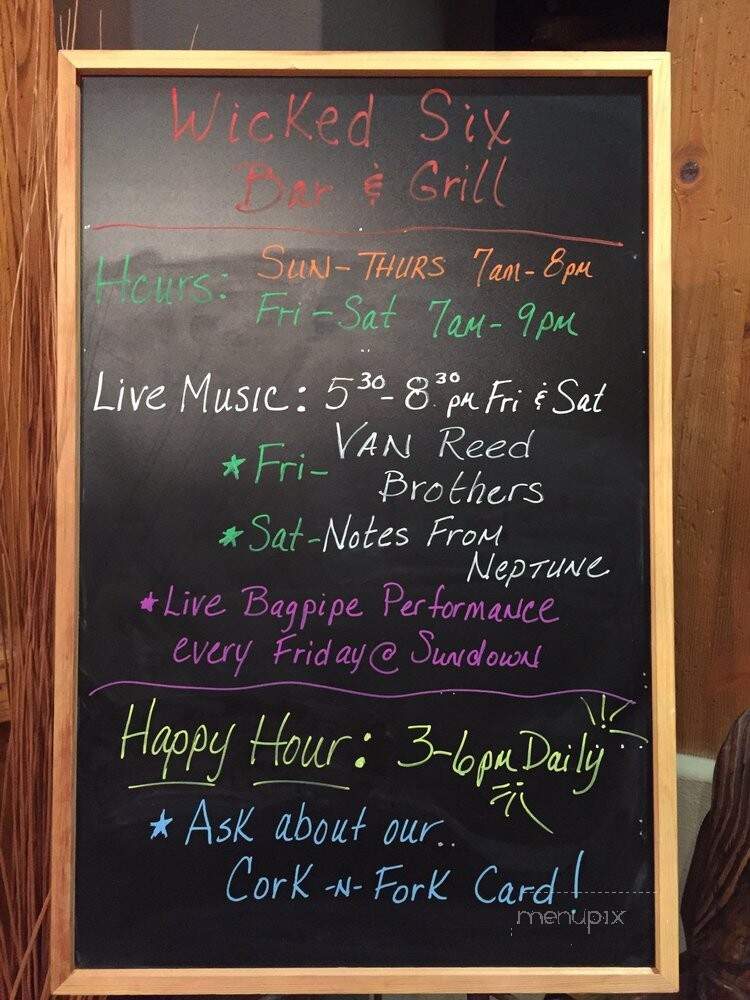 Wicked Six
Bar & Grill
Hours: SUN-THURS 7am-8pm
Fri-Sat 7am-9pm
Live Music: 5³⁰-8³⁰pm Fri & Sat
VAN Reed
* Fri-
Brothers
* Sat-Notes From
Neptune
* Live Bagpipe Performance
every Friday @ Sundown
Happy Hour: 3-6pm Daily
* Ask about our..
Cork -N- Fork Card!
menupix